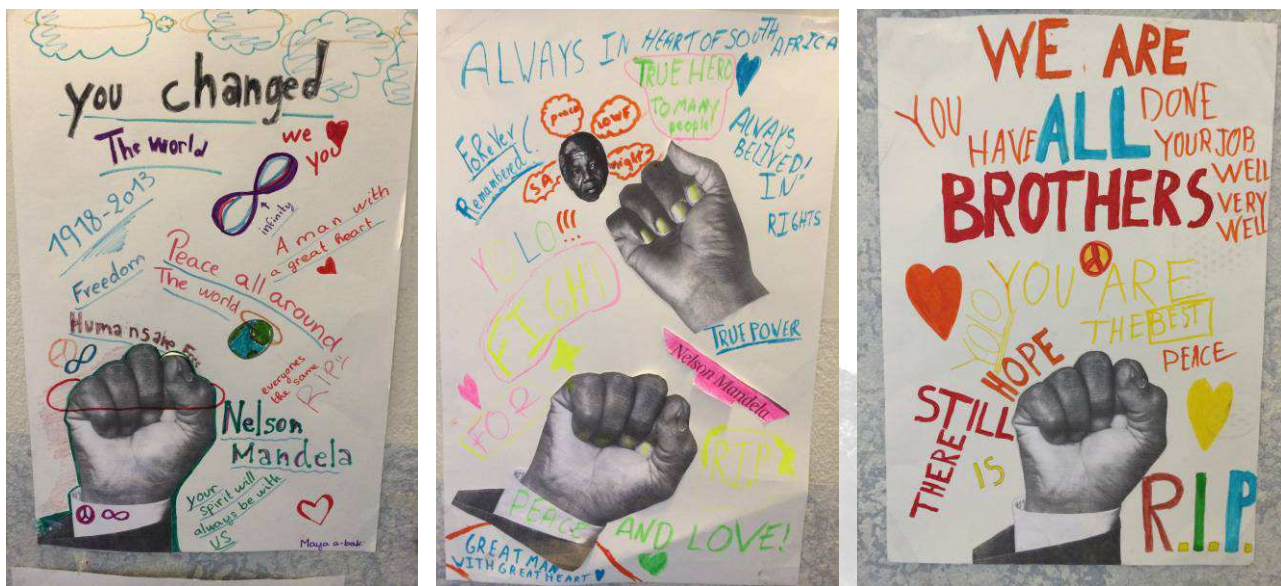 you changed
The world
we
you
1918-2013
infinity
A man with
a great heart
Freedom
Peace all around
The world
Humainsake
everyones
the same
RIP
Nelson
Mandela
your
spirit will
always be with
us
Maya a-bak
ALWAYS IN HEART OF SOUTH AFRICA
TRUE HERO
TO MANY
people
FoReVer
Remambered
peace
LOVE
S.A.
rights
ALWAYS
BELIVED!
IN
RIGHTS
YOLO!!!
FIGHT
FOR
TRUE POWER
Nelson Mandela
R.I.P
PEACE AND LOVE!
GREAT MAN
WITH GREAT HEART
WE ARE
ALL
BROTHERS
YOU
HAVE
DONE
YOUR JOB
WELL
VERY
WELL
YOLO
YOU ARE
THE BEST
PEACE
THERE
IS
STILL
HOPE
R.I.P.